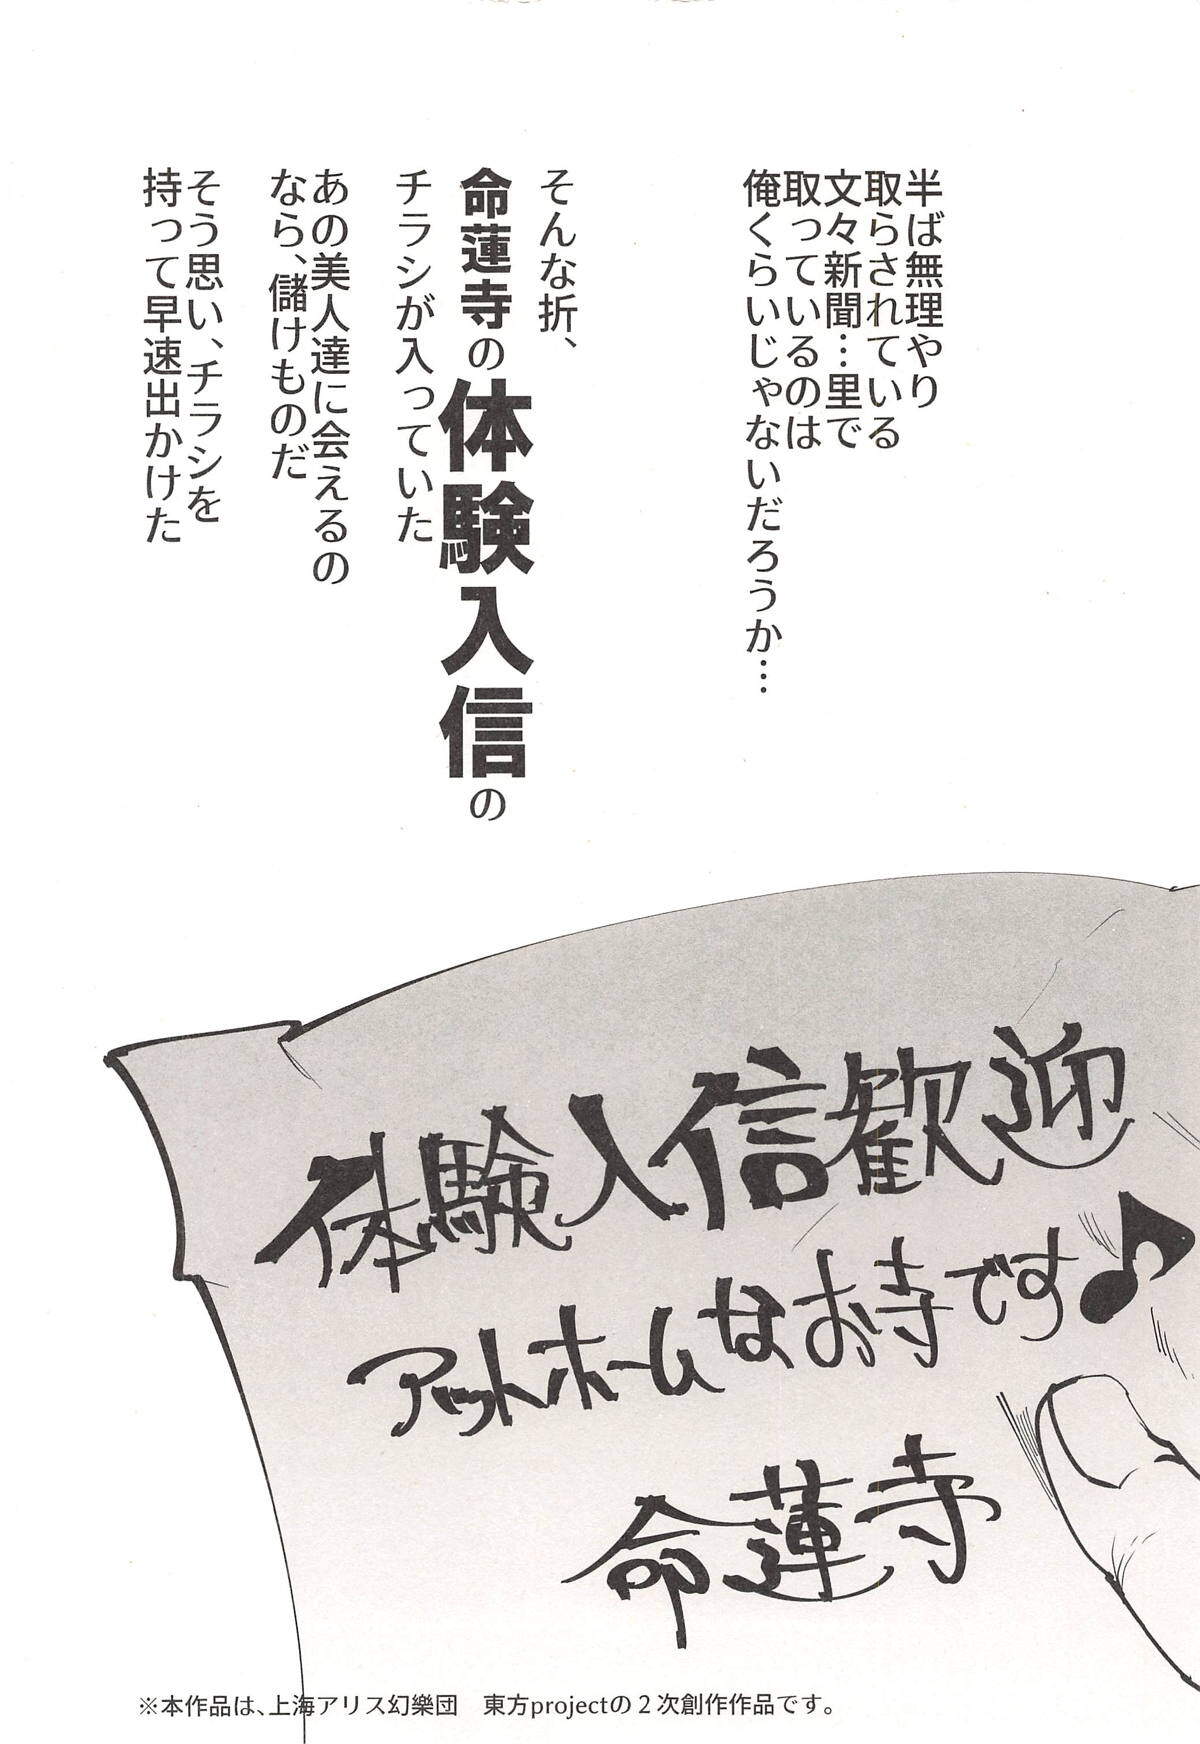 半ば無理やり
取らされている
文々新聞…里で
取っているのは
俺くらいじゃないだろうか…
そんな折、
命蓮寺の体験入信の
チラシが入っていた
あの美人達に会えるの
なら、儲けものだ
そう思い、チラシを
持って早速出かけた
体験入信歓迎
アットホームなお寺です♪
命蓮寺
※本作品は、上海アリス幻樂団　東方projectの2次創作作品です。